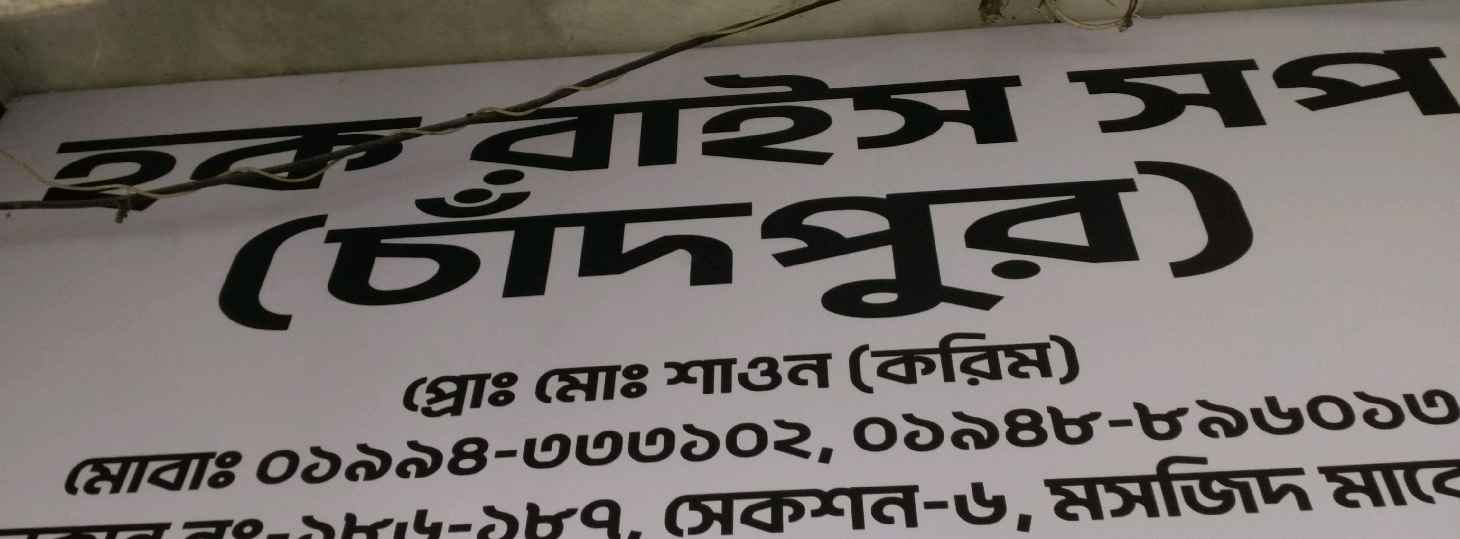 হক রাইস সপ
(চাঁদপুর)
প্রোঃ মোঃ শাওন (করিম)
মোবাঃ ০১৯৯৪-৩৩৩১০২, ০১৯৪৮-৮৯৬০১৩
নং-১৮৬-১৮৭, সেকশন-৬, মসজিদ